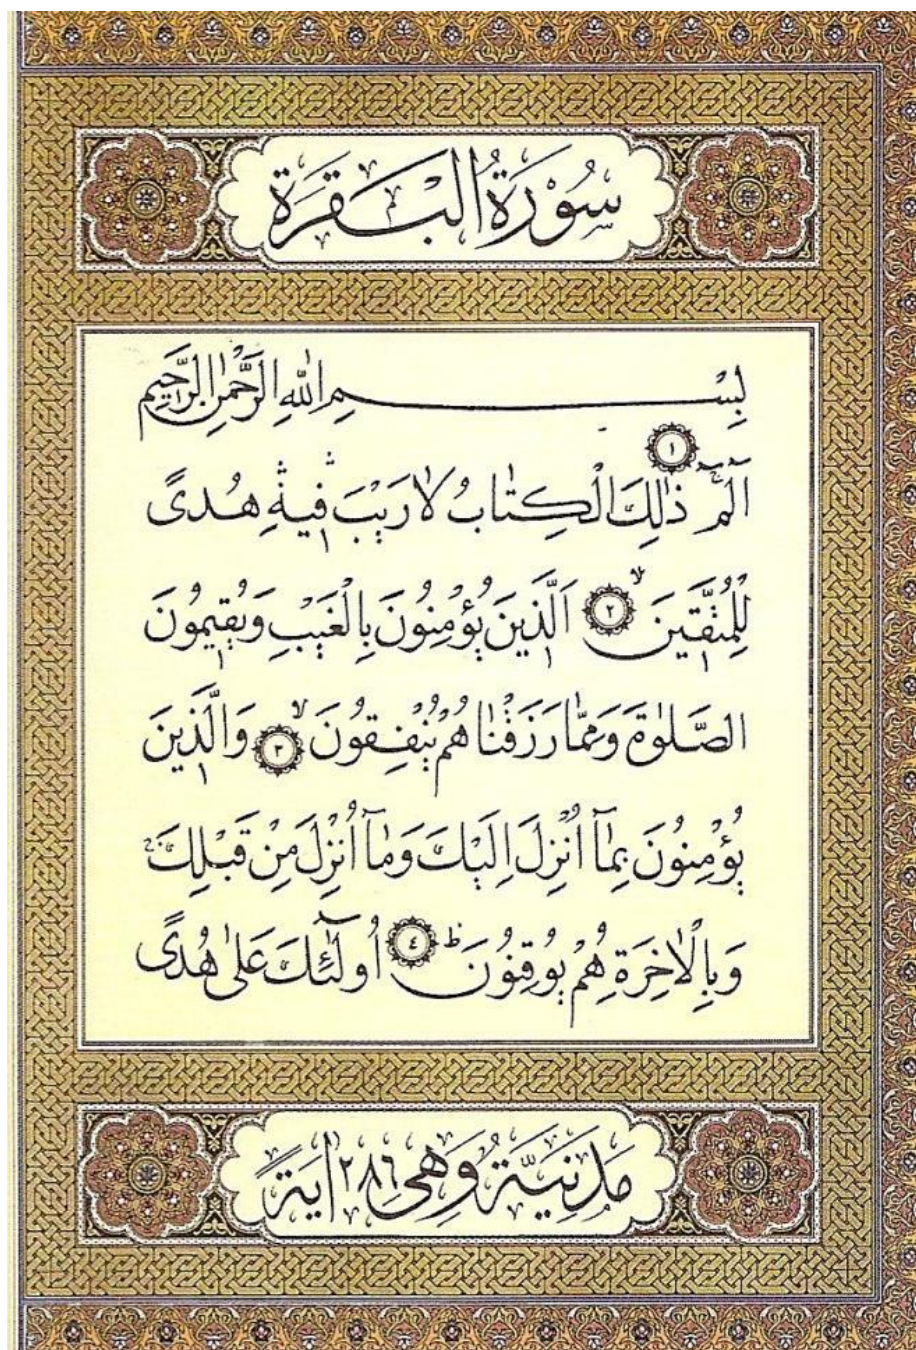 سُورَةُ الْبَقَرَةِ
بِسْمِ اللّٰهِ الرَّحْمٰنِ الرَّحِيمِ
الٓمٓ ۚ ﴿١﴾ ذٰلِكَ الْكِتَابُ لَا رَيْبَ ۛ فِيهِ ۛ هُدًى
لِلْمُتَّقِينَ ۙ ﴿٢﴾ اَلَّذِينَ يُؤْمِنُونَ بِالْغَيْبِ وَيُقِيمُونَ
الصَّلٰوةَ وَمِمَّا رَزَقْنَاهُمْ يُنْفِقُونَ ۙ ﴿٣﴾ وَالَّذِينَ
يُؤْمِنُونَ بِمَٓا اُنْزِلَ اِلَيْكَ وَمَٓا اُنْزِلَ مِنْ قَبْلِكَ ۚ
وَبِالْاٰخِرَةِ هُمْ يُوقِنُونَ ۜ ﴿٤﴾ اُولٰٓئِكَ عَلٰى هُدًى
مَدَنِيَّةٌ وَهِيَ ٢٨٦ اٰيَةً